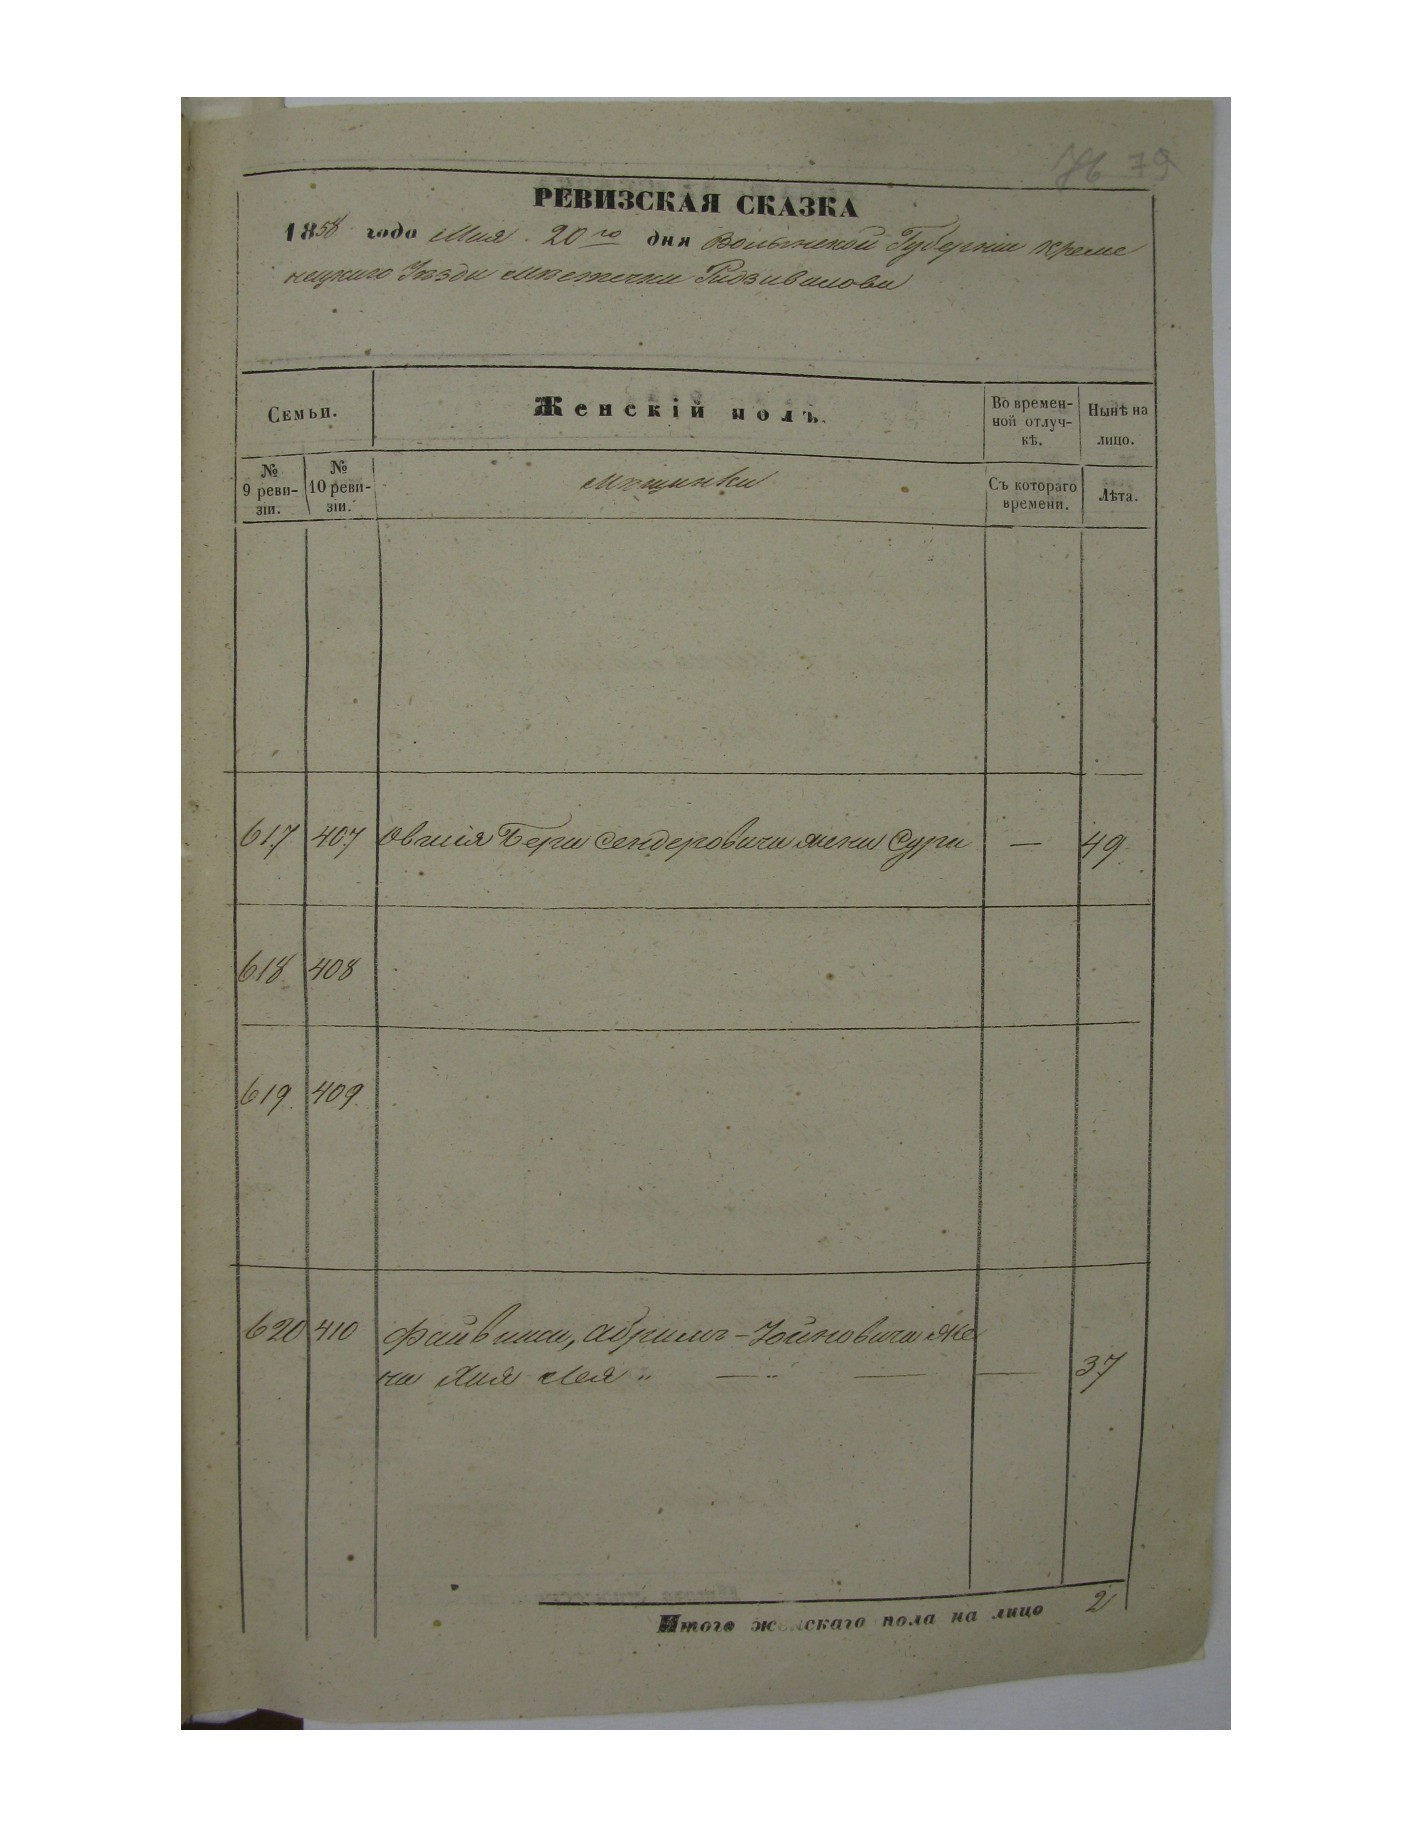 79
РЕВИЗСКАЯ СКАЗКА
1858 года Мая 20го дня Волынской Губерніи Креме
нецкаго Уѣзда мѣстечка Радзивилова
Семьи.
Женскій полъ.
Во времен-
ной отлуч-
кѣ.
Нынѣ на
лицо.
№
9 реви-
зіи.
№
10 реви-
зіи.
мѣщанки
Съ котораго
времени.
Лѣта.
617 407 Овшія Бера Сендеровича жена Сура — 49
618 408
619 409
620 410 Файвиша, Абрамъ-Хаимовича же
на Хая Лея „ — „ — — 37
Итого женскаго пола на лицо 2